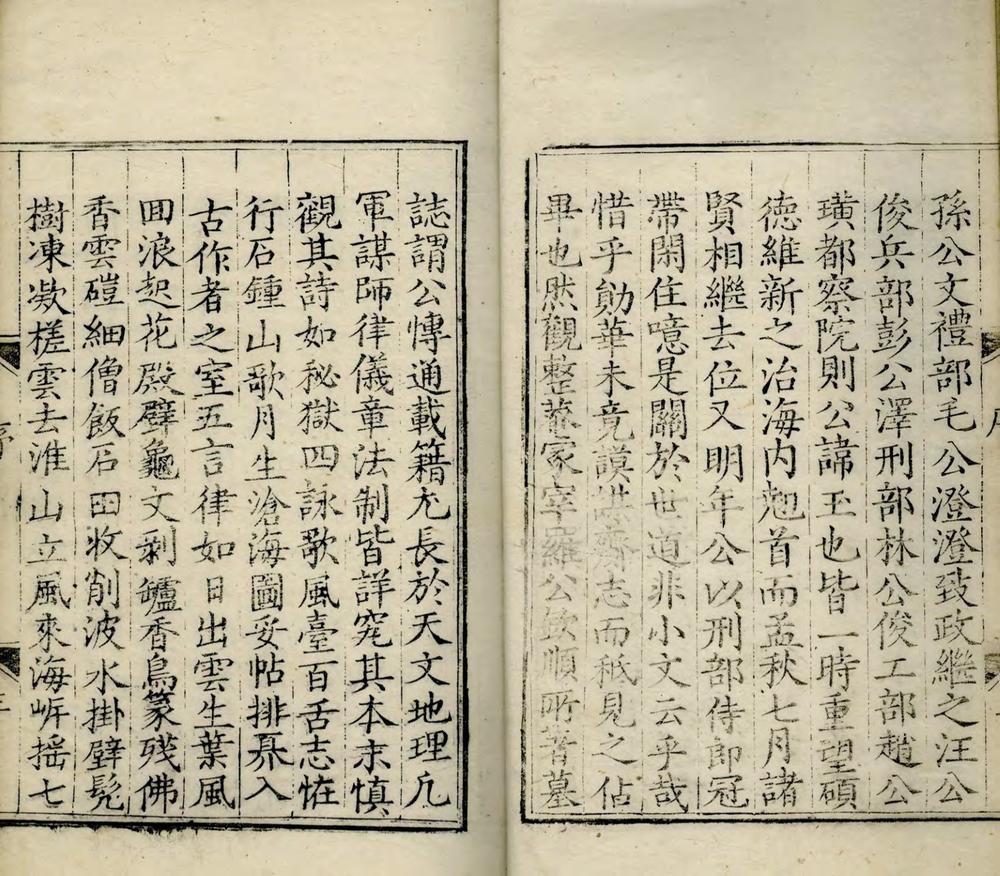 孫公文禮部毛公澄澄致政繼之汪公
俊兵部彭公澤刑部林公俊工部趙公
璜都察院則公諱玉也皆一時重望碩
德維新之治海內翹首而孟秋七月諸
賢相繼去位又明年公以刑部侍郎冠
帶閑住噫是關於世道非小文云乎哉
惜乎勛華未竟謨志而秪見之佔
畢也然觀整菴冢宰羅公欽順所著墓
誌謂公愽通載籍尤長於天文地理凡
軍謀師律儀章法制皆詳究其本末慎
觀其詩如秘獄四詠歌風臺百舌志恠
行石鍾山歌月生滄海圖妥帖排奡入
古作者之室五言律如日出雲生葉風
囬浪起花殿壁龜文剥罏香鳥篆殘佛
香雲磑細僧飯石田收削波水掛壁髡
樹凍凝槎雲去淮山立風來海㟁揺七
序